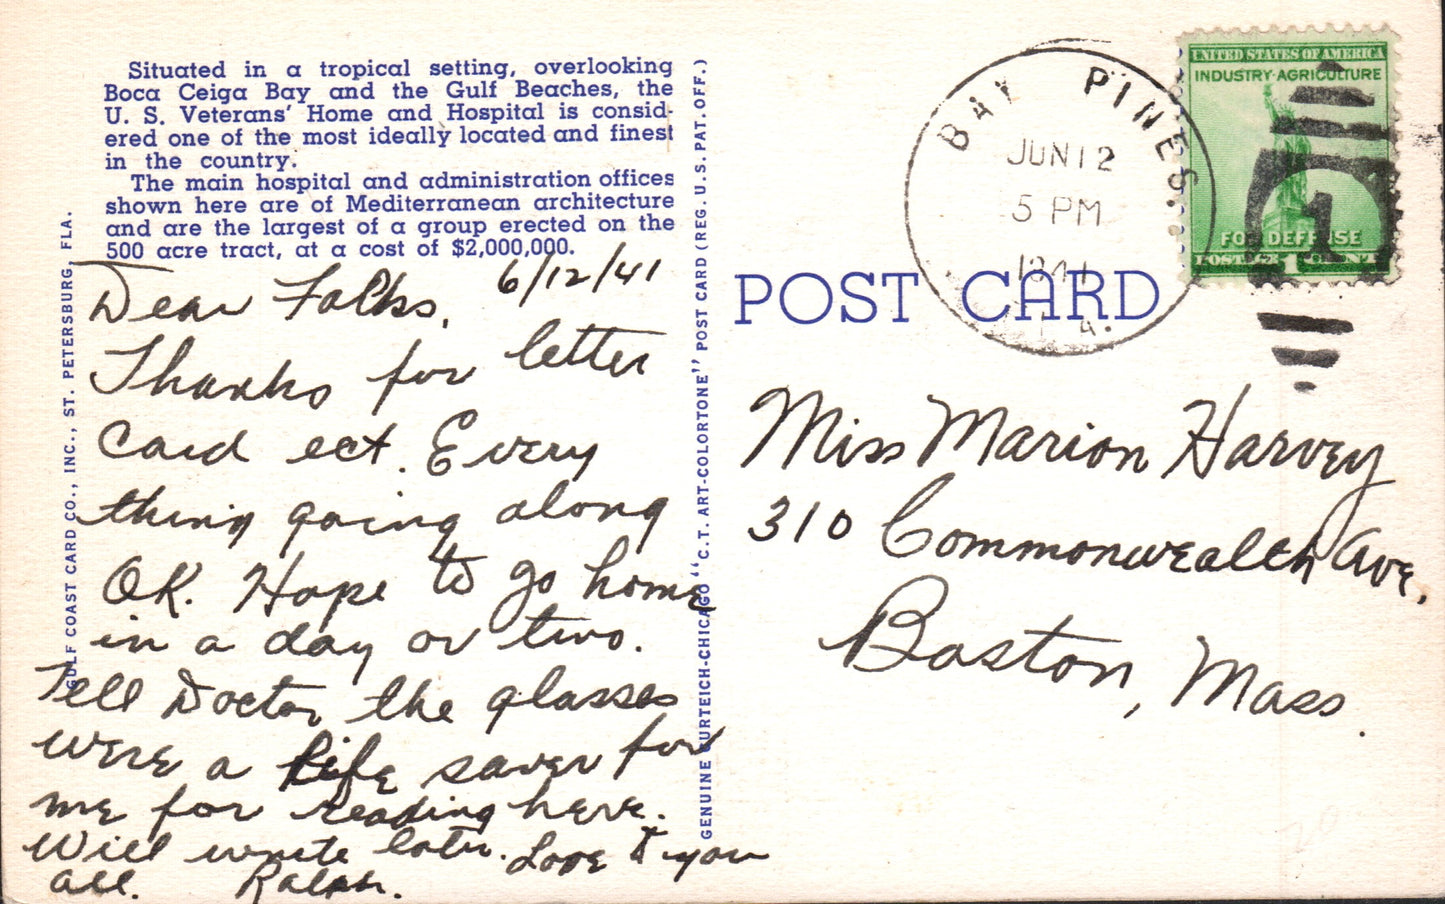 Situated in a tropical setting, overlooking
Boca Ceiga Bay and the Gulf Beaches, the
U. S. Veterans' Home and Hospital is consid-
ered one of the most ideally located and finest
in the country.
The main hospital and administration offices
shown here are of Mediterranean architecture
and are the largest of a group erected on the
500 acre tract, at a cost of $2,000,000.
6/12/41
Dear Folks,
Thanks for letter
Card ect. Every
thing going along
OK. Hope to go home
in a day or two.
Tell Doctor the glasses
were a life saver for
me for reading here.
Will write later. Love to you
all. Ralph.
GULF COAST CARD CO., INC., ST. PETERSBURG, FLA.
GENUINE CURTEICH-CHICAGO "C.T. ART-COLORTONE" POST CARD (REG. U.S. PAT. OFF.)
POST CARD
BAY PINES.
JUN 12
5 PM
1941
FLA.
UNITED STATES OF AMERICA
INDUSTRY·AGRICULTURE
FOR DEFENSE
POSTAGE 1 CENT
1
Miss Marion Harvey
310 Commonwealth Ave,
Boston, Mass.